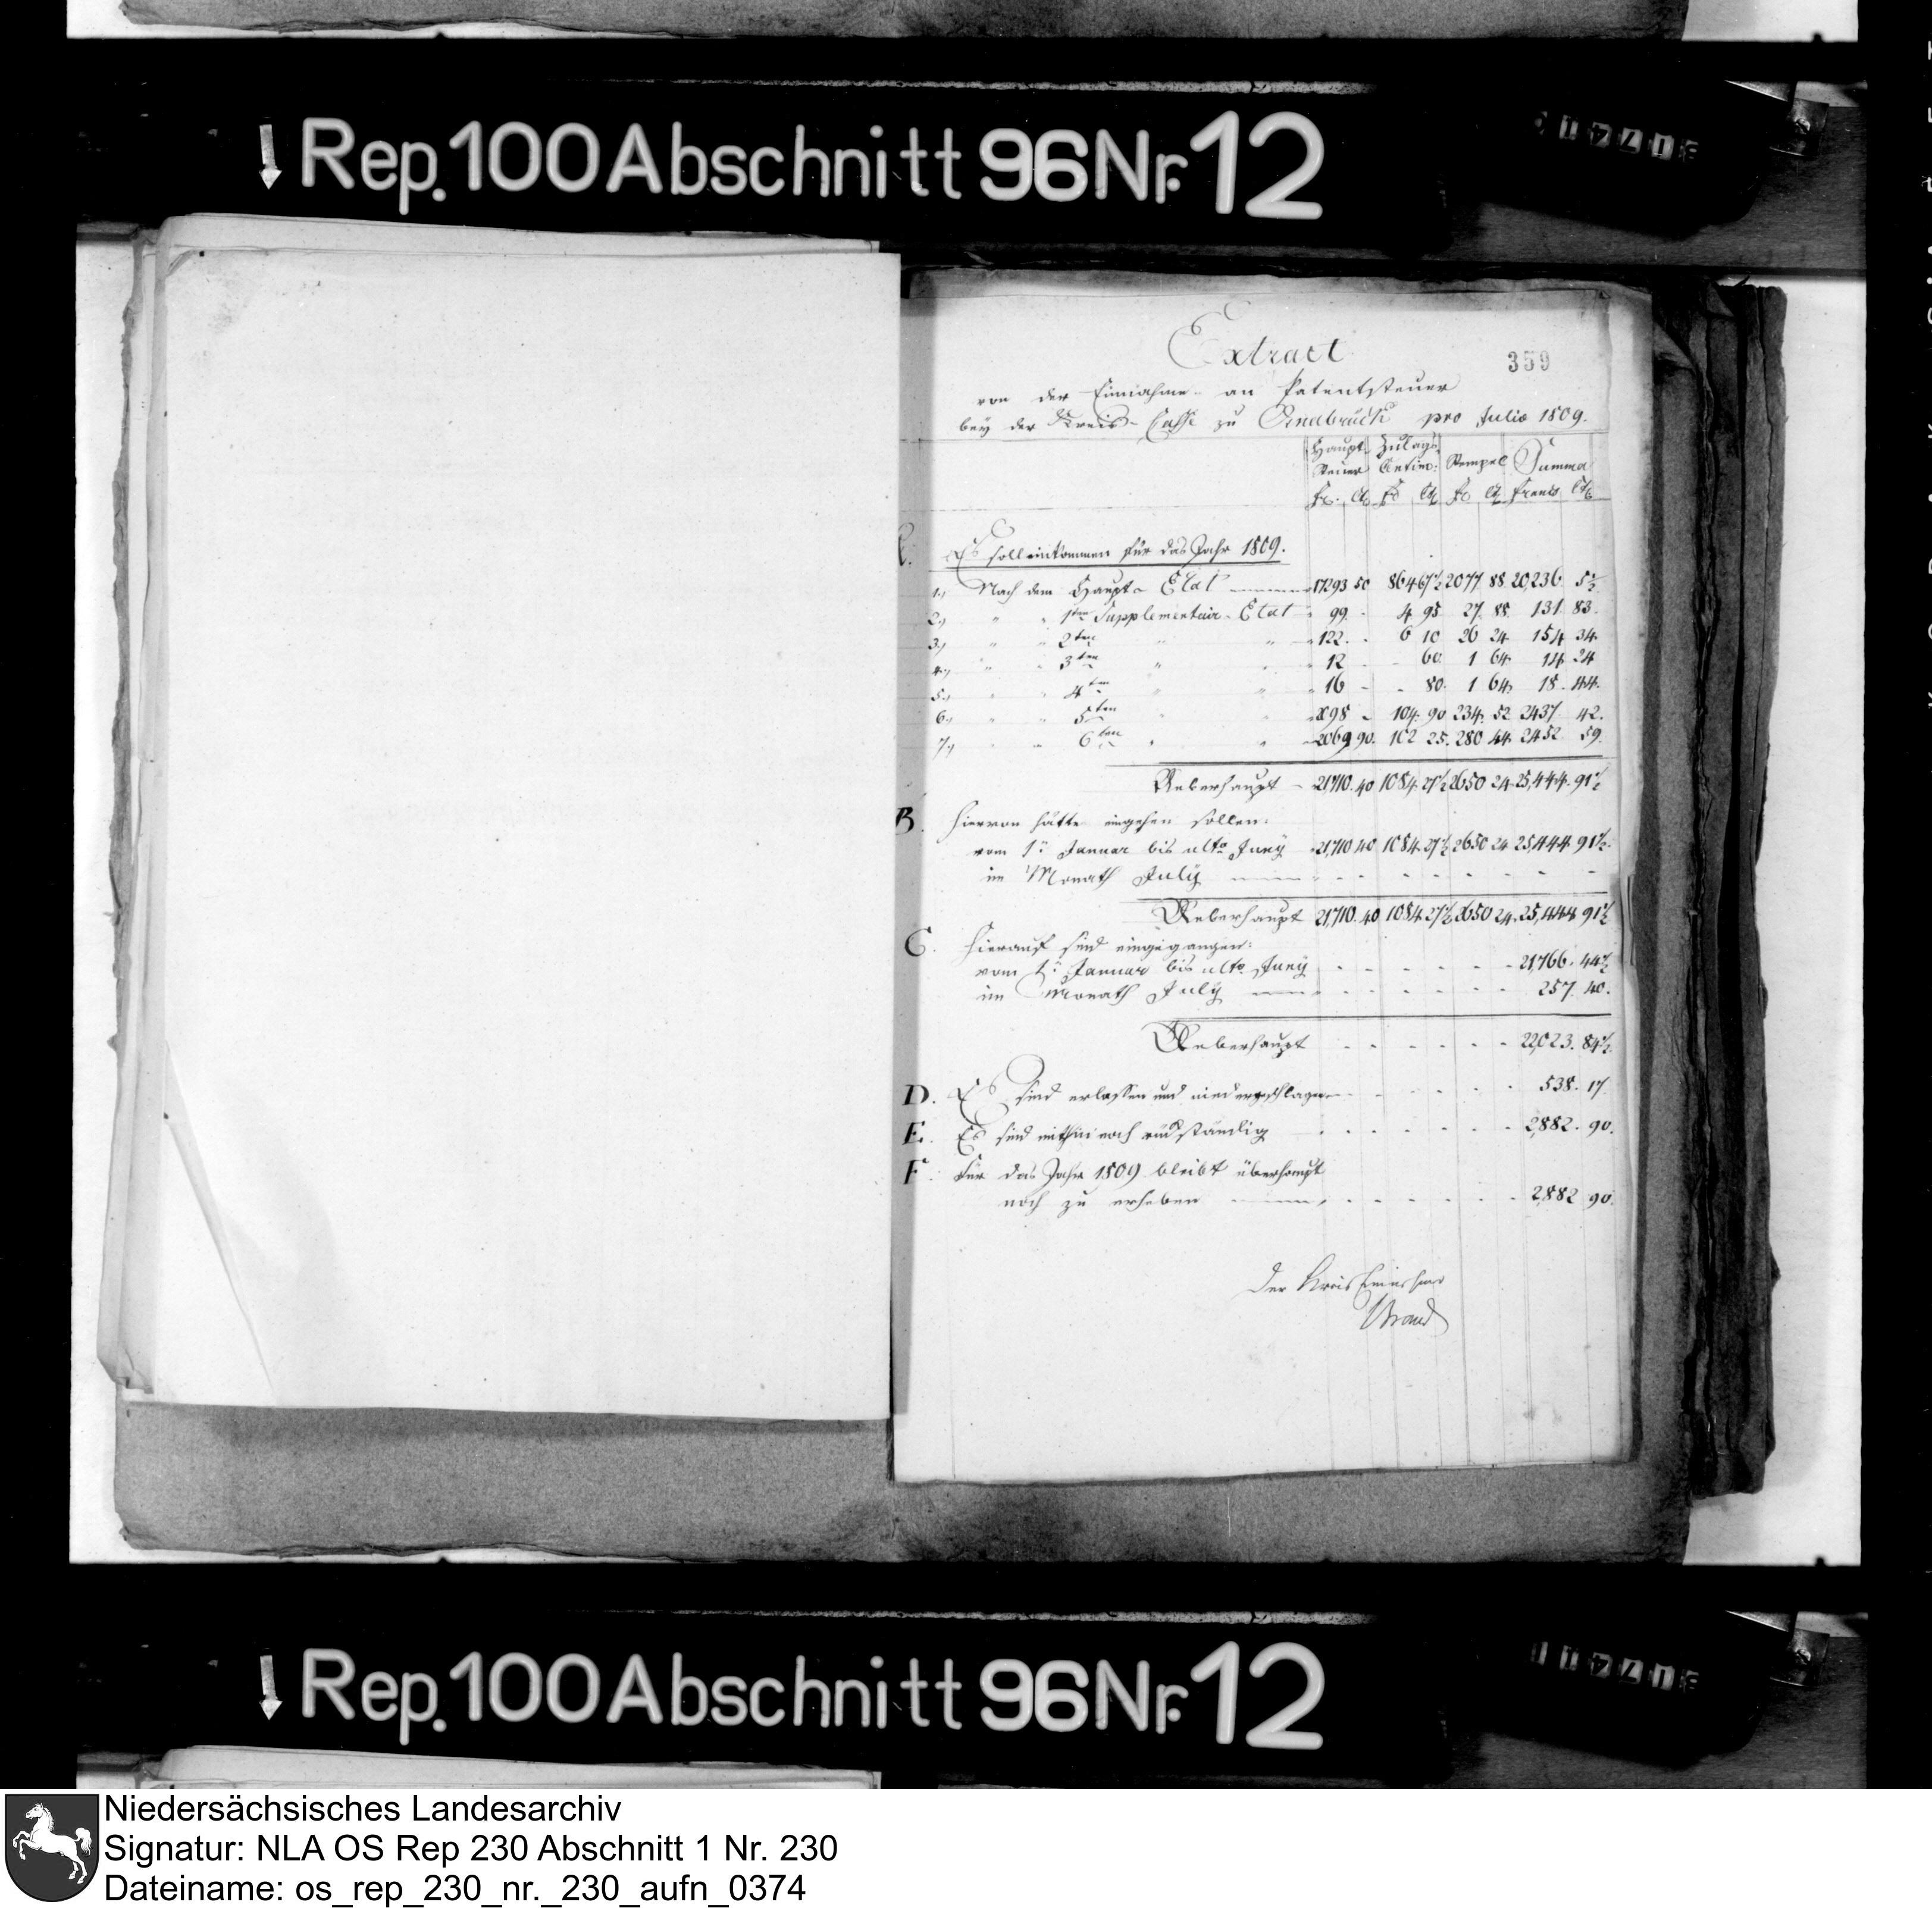 Rep. 100 Abschnitt 96 Nr. 12
Extract
359
von der Einnahme an Patentsteuer
bey der Kreis-Casse zu Osnabrück pro Julio 1809.
Haupt Steuer Zulags Centim: Stempel Summa
Fr. Ct. Fr. Ct. Fr. Ct. Francs Ct.
Es soll einkommen für das Jahr 1809.
1., Nach dem Haupt-Etat 17293 50 864 67½ 2077 88 20,236 5½
2., " " 1ten Supplementair-Etat 99 - 4 95 27 88 131 83.
3., " " 2ten " " 122. - 6 10 26 24 154 34
4., " " 3ten " " 12 - - 60 1 64 14 24
5., " " 4ten " " 16 - - 80. 1 64 18. 44.
6., " " 5ten " " 2098 - 104. 90 234. 52 2437. 42.
7., " " 6ten " " 2069 90. 102 25. 280 44 2452 59.
Ueberhaupt 21,710. 40 1084. 27½ 2650 24 25,444. 91½
B. Hiervon hätte eingehen sollen:
vom 1n Januar bis ulto Juny 21,710 40 1084. 27½ 2650 24 25,444 91½.
im Monath July - - - - - - - -
Ueberhaupt 21,710. 40 1084. 27½ 2650 24. 25,444 91½
C. Hierauf sind eingegangen:
vom 1n Januar bis ulto Juny - - - - - - 21,766. 44½
im Monath July - - - - - - 257. 40.
Ueberhaupt - - - - - - 22,023. 84½.
D. Es sind erlassen und niedergeschlagen - - - - 538. 17.
E. Es sind mithin noch rückständig - - - - - - 2,882. 90.
F. Für das Jahr 1809 bleibt überhaupt
noch zu erheben - - - - - - 2,882 90.
Der Kreis Einnehmer
Rep. 100 Abschnitt 96 Nr. 12
Niedersächsisches Landesarchiv
Signatur: NLA OS Rep 230 Abschnitt 1 Nr. 230
Dateiname: os_rep_230_nr._230_aufn_0374